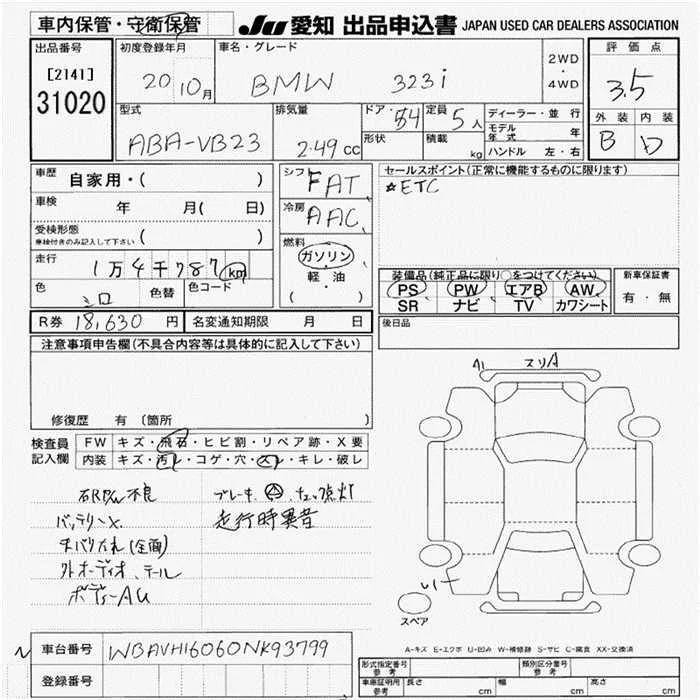 車内保管・守衛保管
JU 愛知 出品申込書 JAPAN USED CAR DEALERS ASSOCIATION
出品番号
[2141]
31020
初度登録年月
20 10月
車名・グレード
BMW 323i
2WD
・
4WD
評価点
3.5
外装 内装
B D
型式
ABA-VB23
排気量
2.49 cc
ドア・
形状
定員 5人
積載 kg
ディーラー・並行
モデル年式 年
ハンドル 左・右
車歴 自家用・( )
車検 年 月( 日)
受検形態
車検付きのみ記入して下さい ( )
走行 1万4千787km
色 シロ 色替 色コード
シフト FAT
冷房 AAC
燃料
ガソリン
軽・油
( ・ )
セールスポイント(正常に機能するものに限ります)
☆ETC
装備品(純正品に限り○をつけてください)
PS PW エアB AW
SR ナビ TV カワシート
新車保証書
有・無
後日品
R券 18,630 円 名変通知期限 月 日
注意事項申告欄(不具合内容等は具体的に記入して下さい)
修復歴 有 〔箇所 〕
検査員
記入欄
FW キズ・飛石・ヒビ割・リペア跡・X要
内装 キズ・汚レ・コゲ・穴・スレ・キレ・破レ
右RPW不良
バッテリーX
ブレーキ
走行時異音
外オーディオ、テール
ボディーAU
スリA
スペア
A-キズ E-エクボ U-凹み W-補修跡 S-サビ C-腐食 XX-交換済
車台番号 WBAVH16060NK93799
登録番号
形式指定番号 参考 類別区分番号 参考
車庫証明用 参考 長さ cm 幅 cm 高さ cm